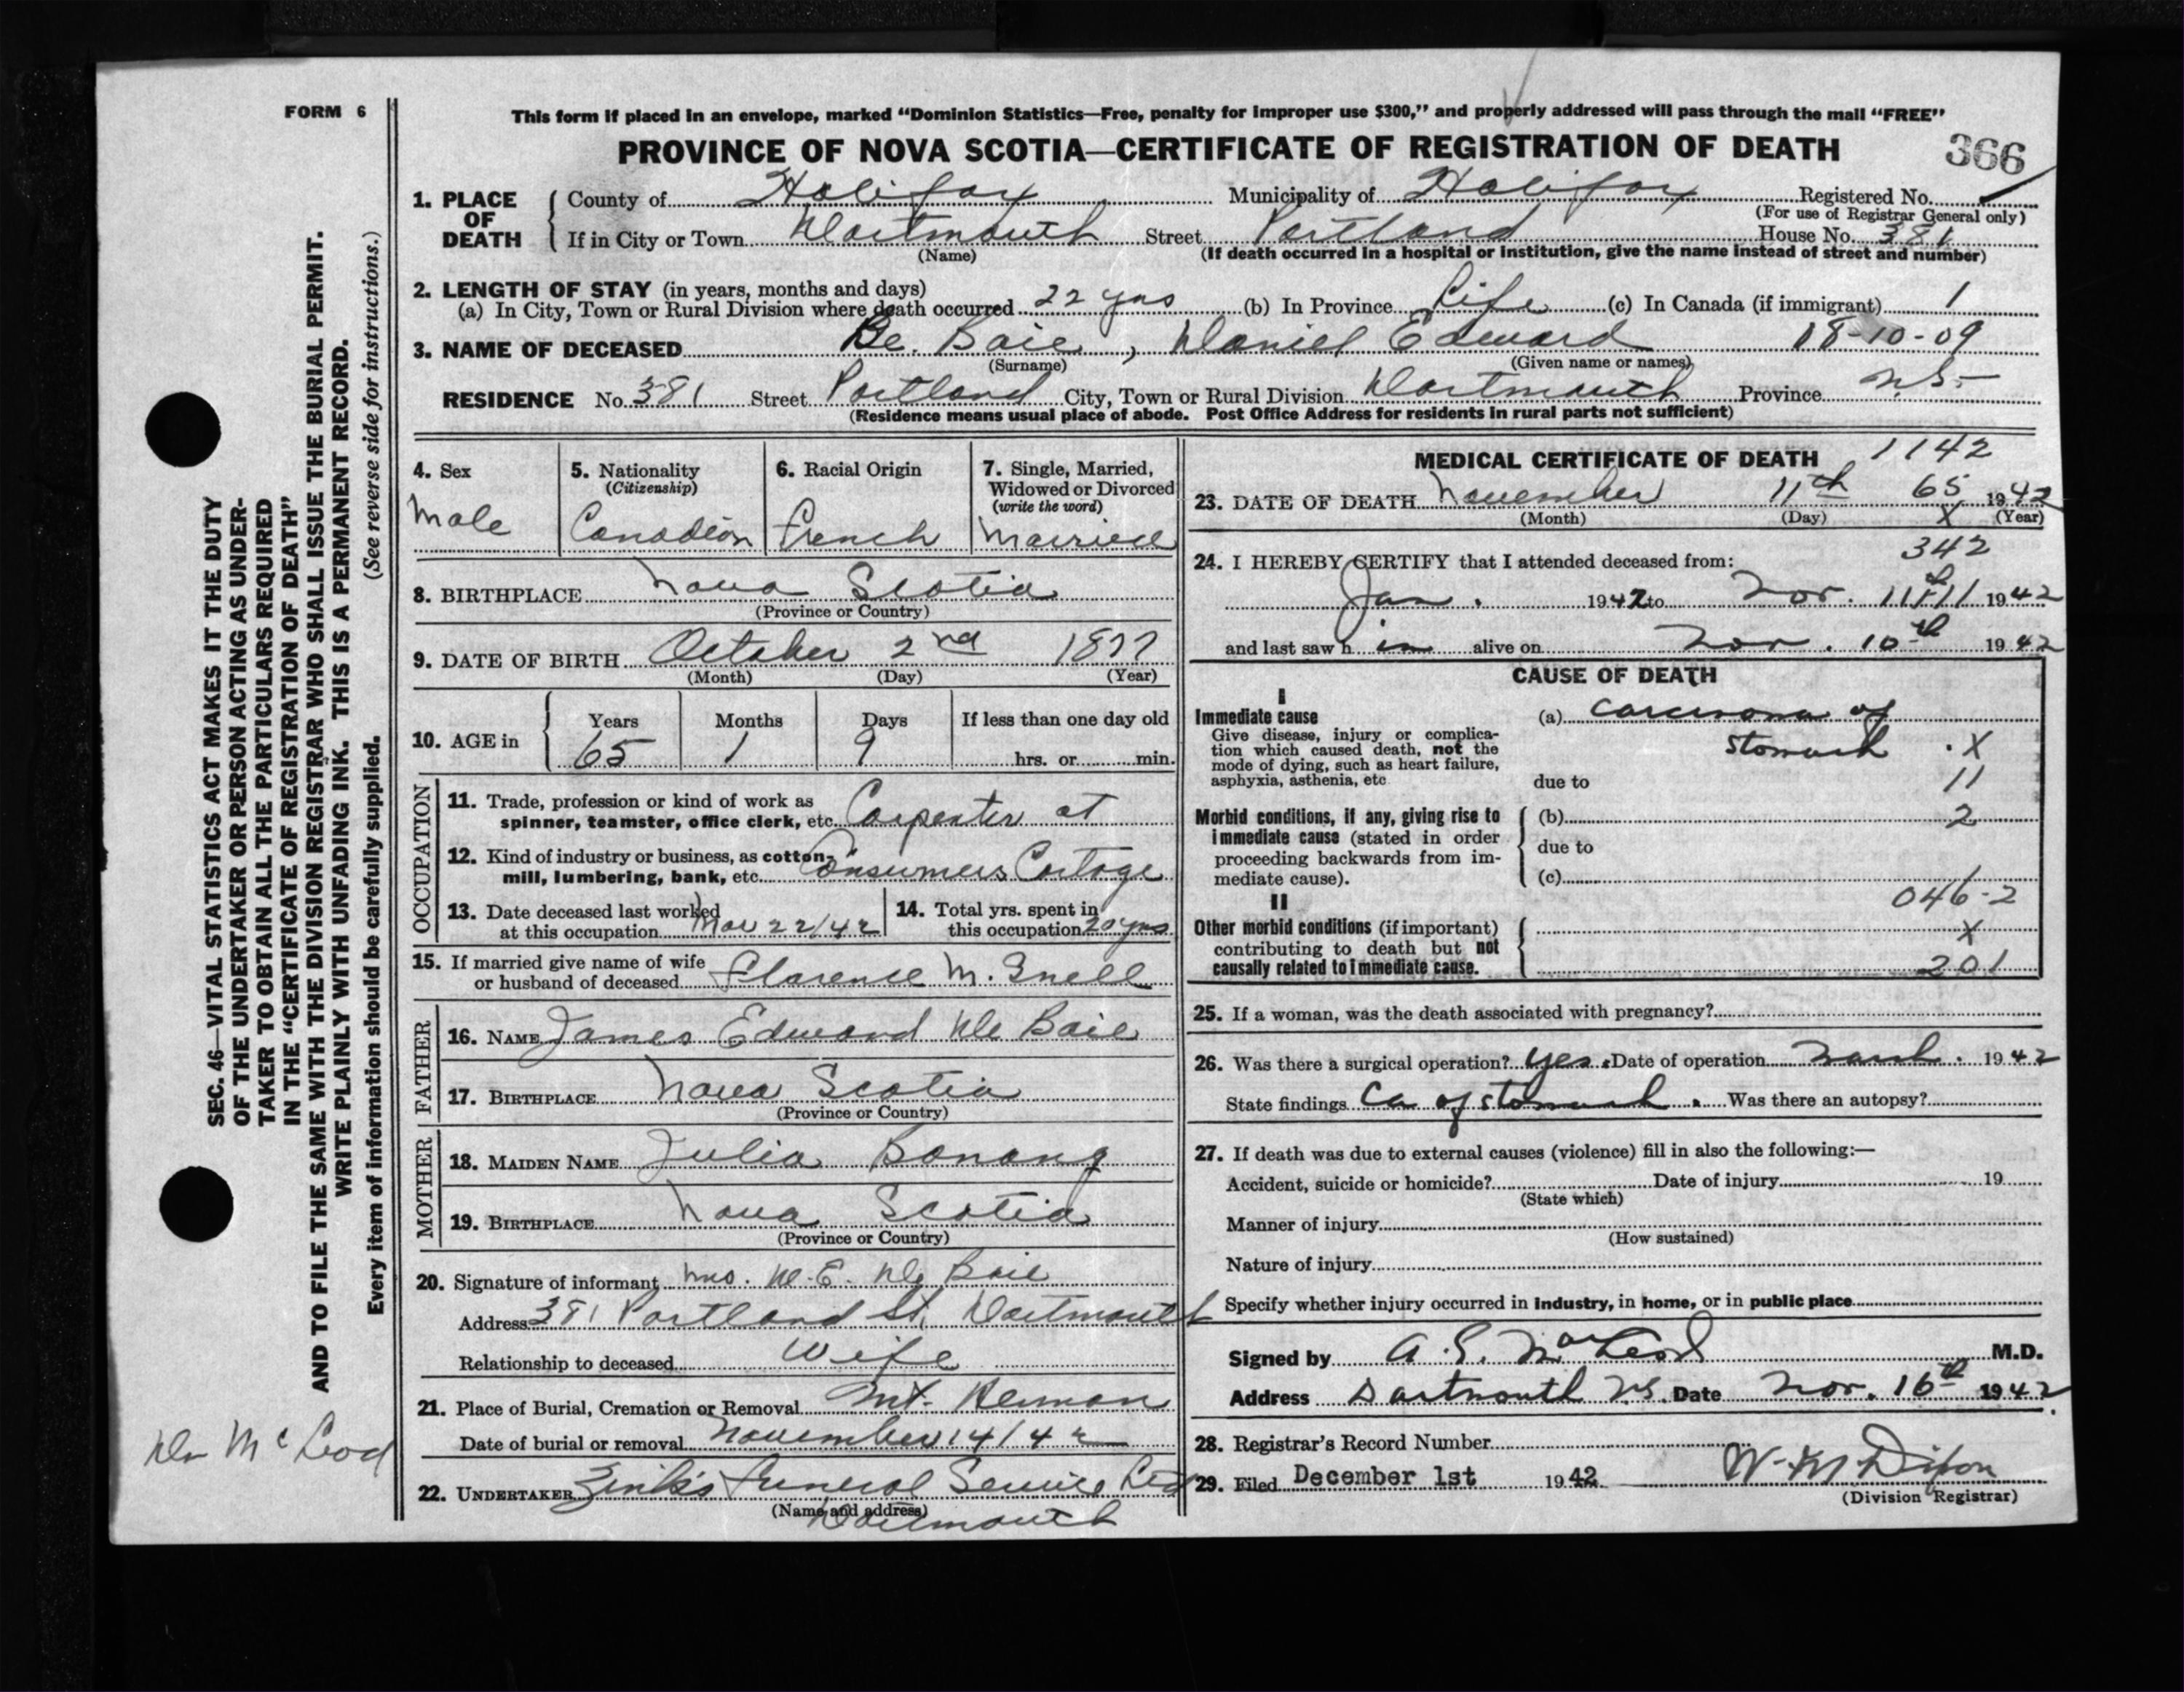 FORM 6
This form if placed in an envelope, marked “Dominion Statistics—Free, penalty for improper use $300,” and properly addressed will pass through the mail “FREE”
PROVINCE OF NOVA SCOTIA—CERTIFICATE OF REGISTRATION OF DEATH
366
1. PLACE OF DEATH
County of Halifax Municipality of Halifax Registered No.
(For use of Registrar General only)
If in City or Town Dartmouth Street Portland House No. 381
(Name) (If death occurred in a hospital or institution, give the name instead of street and number)
2. LENGTH OF STAY (in years, months and days)
(a) In City, Town or Rural Division where death occurred 22 yrs (b) In Province Life (c) In Canada (if immigrant) 1
3. NAME OF DECEASED De. Baie, Daniel Edward 18-10-09
(Surname) (Given name or names)
RESIDENCE No. 381 Street Portland City, Town or Rural Division Dartmouth Province N.S.
(Residence means usual place of abode. Post Office Address for residents in rural parts not sufficient)
4. Sex
Male
5. Nationality
(Citizenship)
Canadian
6. Racial Origin
French
7. Single, Married,
Widowed or Divorced
(write the word)
Married
8. BIRTHPLACE Nova Scotia
(Province or Country)
9. DATE OF BIRTH October 2nd 1877
(Month) (Day) (Year)
10. AGE in
Years Months Days If less than one day old
65 1 9 hrs. or min.
OCCUPATION
11. Trade, profession or kind of work as
spinner, teamster, office clerk, etc. Carpenter at
12. Kind of industry or business, as cotton-
mill, lumbering, bank, etc. Consumers Cartage
13. Date deceased last worked
at this occupation 22/42
14. Total yrs. spent in
this occupation 20 yrs
15. If married give name of wife
or husband of deceased Florence M. Snell
FATHER
16. NAME James Edward De Baie
17. BIRTHPLACE Nova Scotia
(Province or Country)
MOTHER
18. MAIDEN NAME Julia Bonang
19. BIRTHPLACE Nova Scotia
(Province or Country)
20. Signature of informant Mrs. D. E. De Baie
Address 381 Portland St. Dartmouth
Relationship to deceased Wife
21. Place of Burial, Cremation or Removal Mt. Hermon
Date of burial or removal November 14/42
22. UNDERTAKER Zink's Funeral Service Ltd
(Name and address)
Dartmouth
MEDICAL CERTIFICATE OF DEATH 1142
23. DATE OF DEATH November 11th 65 1942
(Month) (Day) X (Year)
342
24. I HEREBY CERTIFY that I attended deceased from:
Jan. 1942 to Nov. 11th 1942
and last saw h im alive on Nov. 10th 1942
CAUSE OF DEATH
I
Immediate cause
Give disease, injury or complica-
tion which caused death, not the
mode of dying, such as heart failure,
asphyxia, asthenia, etc
(a) Carcinoma of
stomach . X
due to 11
Morbid conditions, if any, giving rise to
immediate cause (stated in order
proceeding backwards from im-
mediate cause).
(b) 2
due to
(c)
046-2
II
Other morbid conditions (if important)
contributing to death but not
causally related to immediate cause.
X
201
25. If a woman, was the death associated with pregnancy?
26. Was there a surgical operation? Yes. Date of operation March. 1942
State findings Ca of stomach. Was there an autopsy?
27. If death was due to external causes (violence) fill in also the following:—
Accident, suicide or homicide? Date of injury 19
(State which)
Manner of injury
(How sustained)
Nature of injury
Specify whether injury occurred in industry, in home, or in public place
Signed by A. G. MacLeod M.D.
Address Dartmouth N.S. Date Nov. 16th 1942
28. Registrar's Record Number
29. Filed December 1st 1942 W. M Dixon
(Division Registrar)
SEC. 46—VITAL STATISTICS ACT MAKES IT THE DUTY
OF THE UNDERTAKER OR PERSON ACTING AS UNDER-
TAKER TO OBTAIN ALL THE PARTICULARS REQUIRED
IN THE “CERTIFICATE OF REGISTRATION OF DEATH”
AND TO FILE THE SAME WITH THE DIVISION REGISTRAR WHO SHALL ISSUE THE BURIAL PERMIT.
WRITE PLAINLY WITH UNFADING INK. THIS IS A PERMANENT RECORD.
Every item of information should be carefully supplied. (See reverse side for instructions.)
Dr McLeod